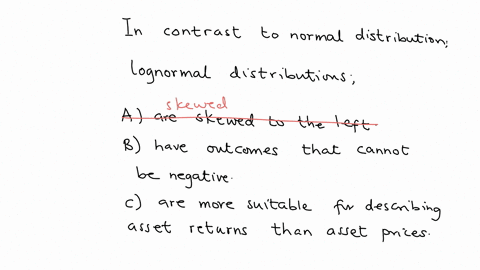 In contrast to normal distribution;
lognormal distributions;
skewed
A) are skewed to the left
B) have outcomes that cannot
be negative.
C) are more suitable for describing
asset returns than asset prices.